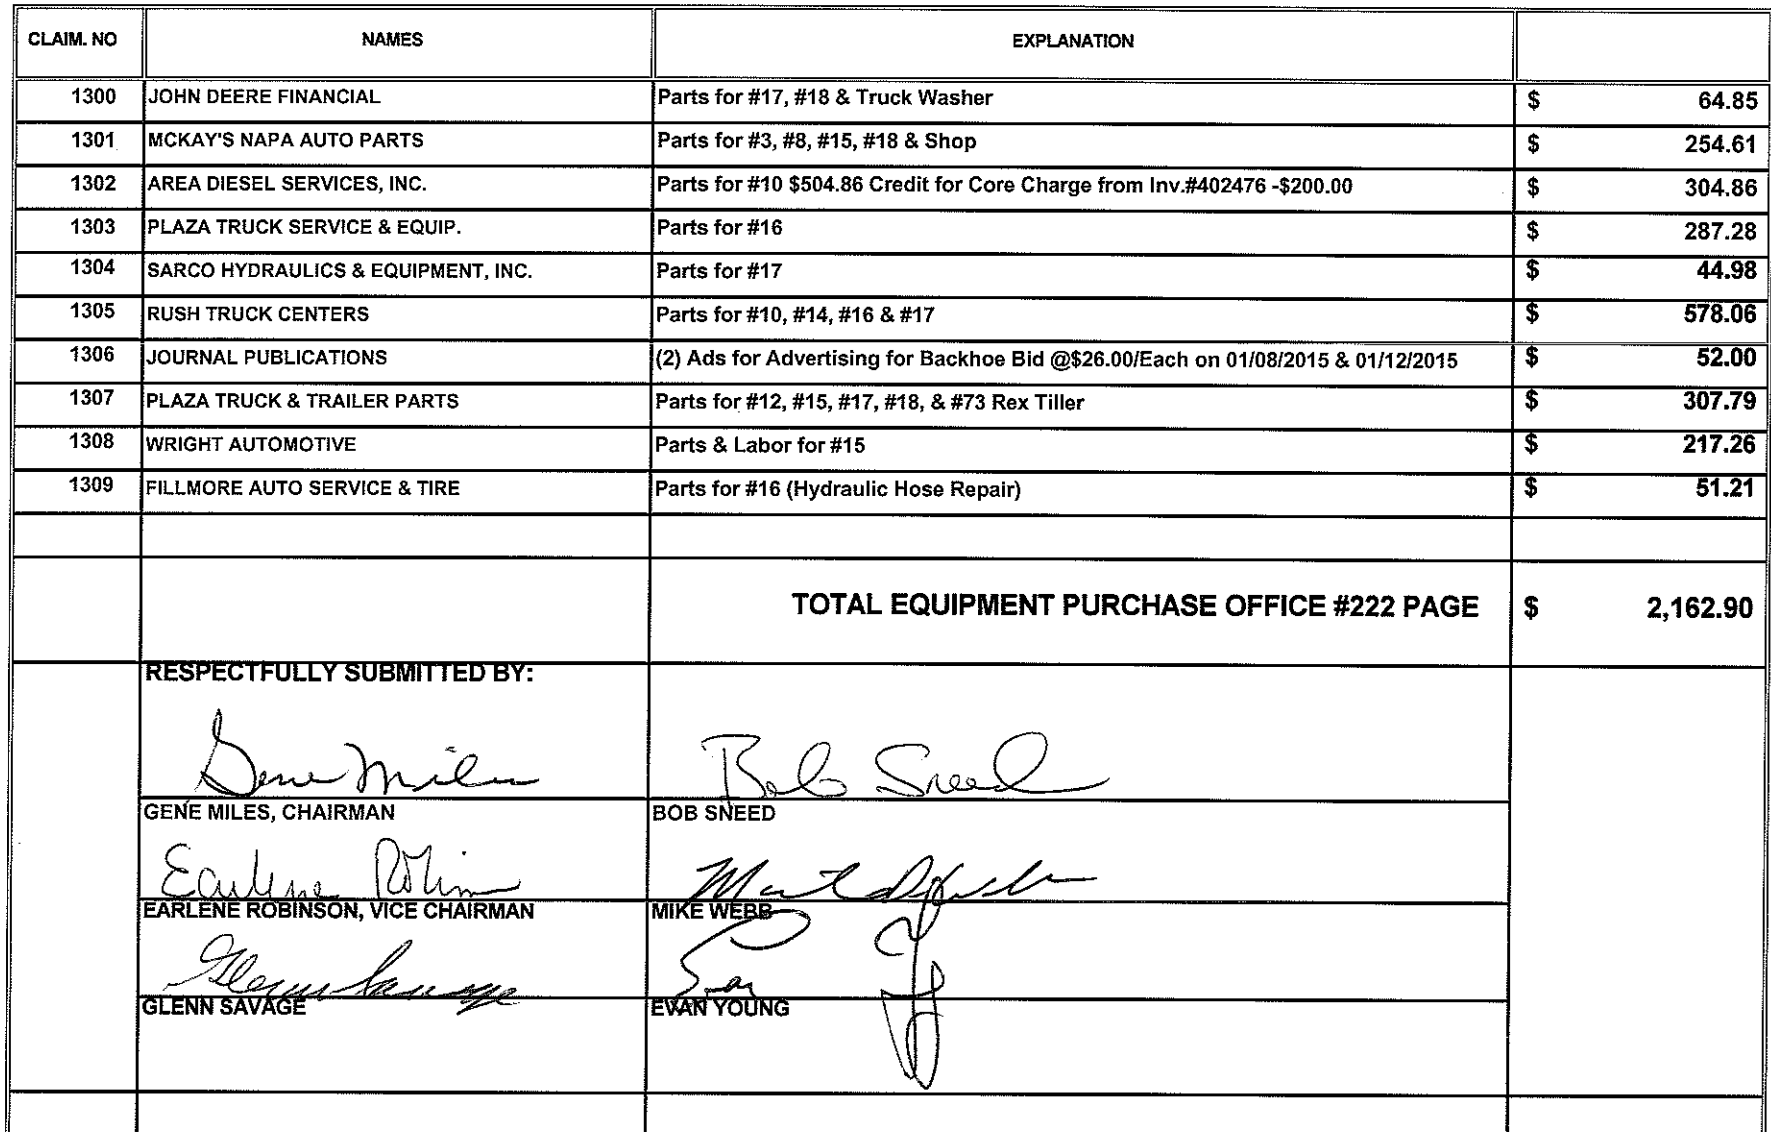 CLAIM. NO NAMES EXPLANATION
1300 JOHN DEERE FINANCIAL Parts for #17, #18 & Truck Washer $ 64.85
1301 MCKAY'S NAPA AUTO PARTS Parts for #3, #8, #15, #18 & Shop $ 254.61
1302 AREA DIESEL SERVICES, INC. Parts for #10 $504.86 Credit for Core Charge from Inv.#402476 -$200.00 $ 304.86
1303 PLAZA TRUCK SERVICE & EQUIP. Parts for #16 $ 287.28
1304 SARCO HYDRAULICS & EQUIPMENT, INC. Parts for #17 $ 44.98
1305 RUSH TRUCK CENTERS Parts for #10, #14, #16 & #17 $ 578.06
1306 JOURNAL PUBLICATIONS (2) Ads for Advertising for Backhoe Bid @$26.00/Each on 01/08/2015 & 01/12/2015 $ 52.00
1307 PLAZA TRUCK & TRAILER PARTS Parts for #12, #15, #17, #18, & #73 Rex Tiller $ 307.79
1308 WRIGHT AUTOMOTIVE Parts & Labor for #15 $ 217.26
1309 FILLMORE AUTO SERVICE & TIRE Parts for #16 (Hydraulic Hose Repair) $ 51.21
TOTAL EQUIPMENT PURCHASE OFFICE #222 PAGE $ 2,162.90
RESPECTFULLY SUBMITTED BY:
Gene Miles Bob Sneed
GENE MILES, CHAIRMAN BOB SNEED
Earlene
EARLENE ROBINSON, VICE CHAIRMAN MIKE WEBB
Glenn Savage
GLENN SAVAGE EVAN YOUNG